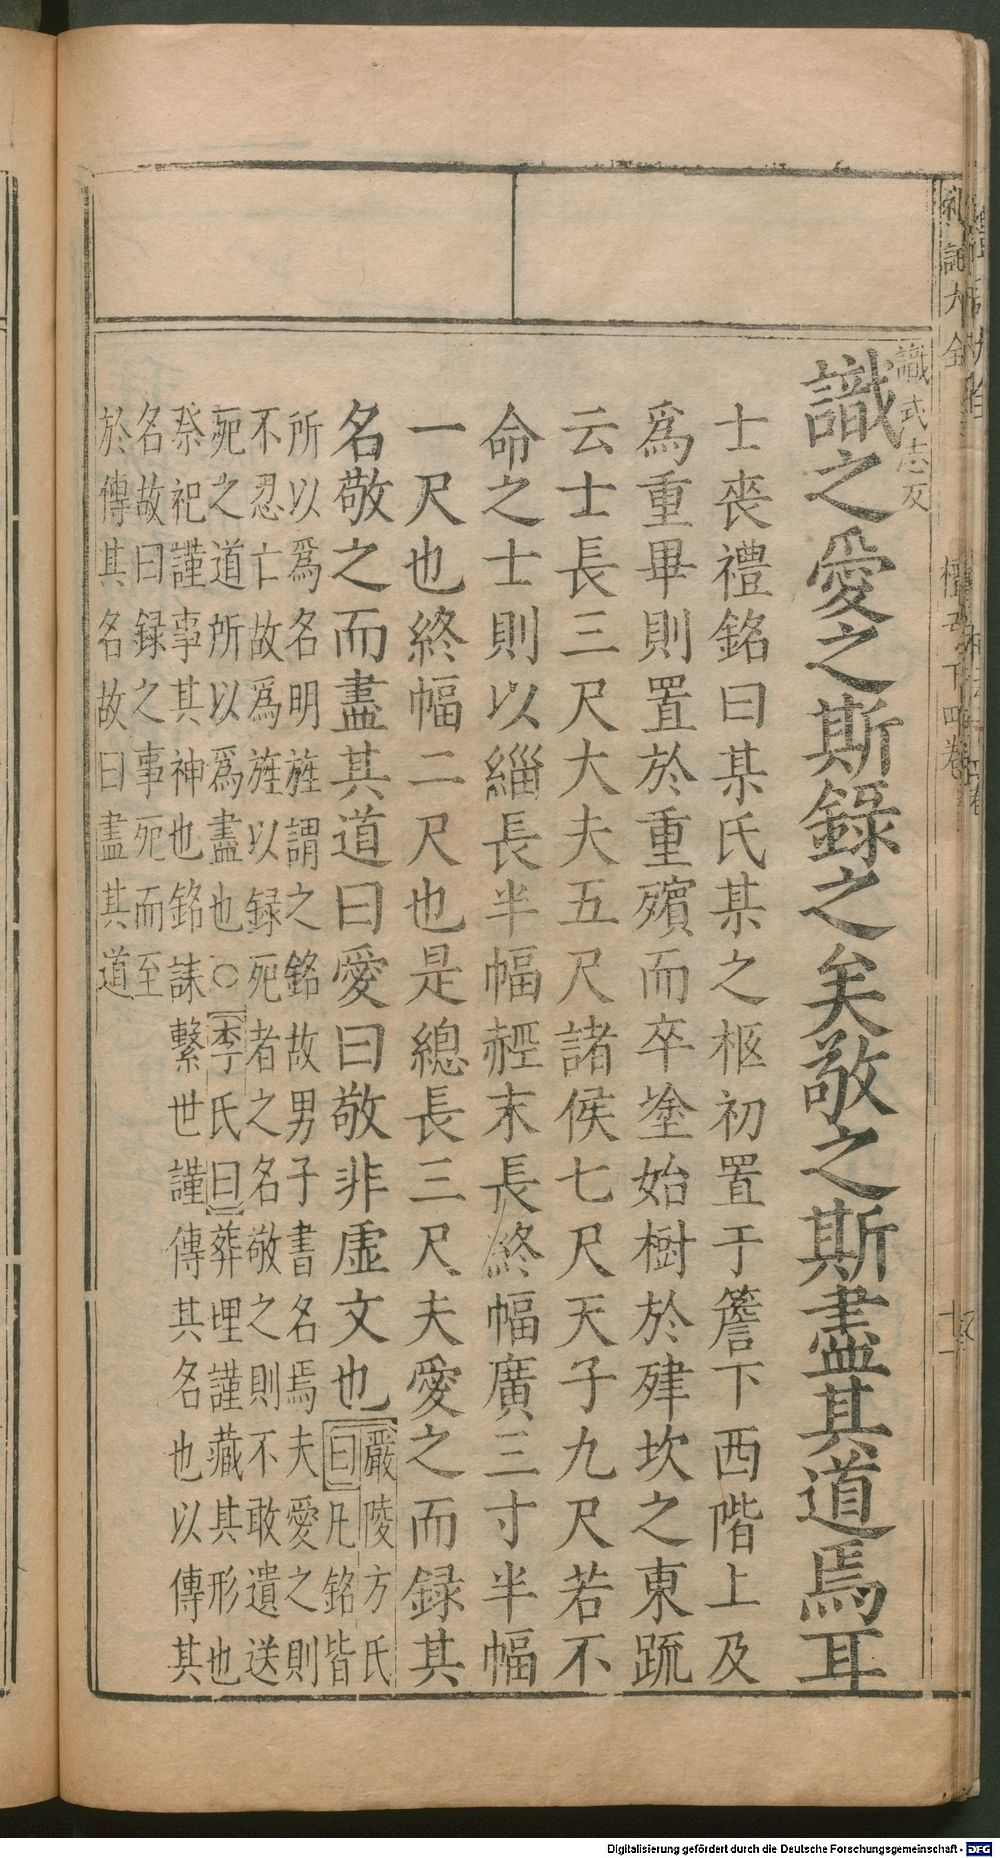 識之愛之斯錄之矣敬之斯盡其道焉耳
識式志反
士喪禮銘曰某氏某之柩初置于簷下西階上及
爲重畢則置於重殯而卒塗始樹於肂坎之東䟽
云士長三尺大夫五尺諸侯七尺天子九尺若不
命之士則以緇長半幅䞓末長終幅廣三寸半幅
一尺也終幅二尺也是總長三尺夫愛之而録其
名敬之而盡其道曰愛曰敬非虛文也
嚴陵方氏
曰凡銘皆
所以爲名明旌謂之銘故男子書名焉夫愛之則
不忍亡故爲旌以録死者之名敬之則不敢遺送
死之道所以爲盡也○李氏曰葬埋謹藏其形也
祭祀謹事其神也銘誄繫世謹傳其名也以傳其
名故曰録之事死而至
於傳其名故曰盡其道
礼記大全
檀弓下四卷
十一
Digitalisierung gefördert durch die Deutsche Forschungsgemeinschaft - DFG